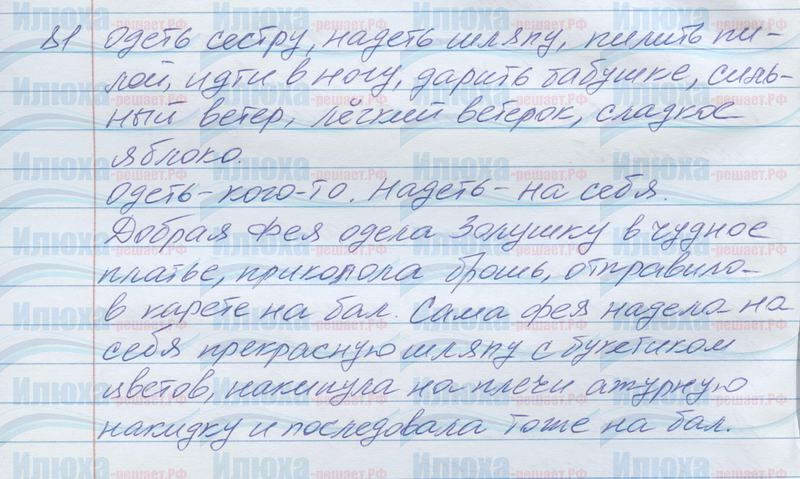 81 Одеть сестру, надеть шляпу, пилить пи-
лой, идти в ногу, дарить бабушке, силь-
ный ветер, лёгкий ветерок, сладкое
яблоко.
Одеть-кого-то. Надеть-на себя.
Добрая Фея одела Золушку в чудное
платье, приколола брошь, отправила
в карете на бал. Сама фея надела на
себя прекрасную шляпу с букетиком
цветов, накинула на плечи ажурную
накидку и последовала тоже на бал.
Илюха-решает.РФ